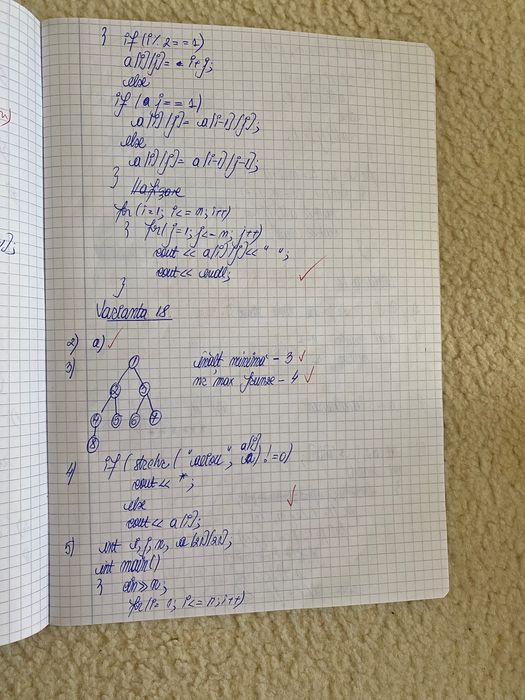 } if (i % 2 == 1)
a[i][j] = i+j;
else
if (j == 1)
a[i][j] = a[i-1][j];
else
a[i][j] = a[i-1][j-1];
}
for (i=1; i<=n; i++)
} for (j=1; j<=n; j++)
cout << a[i][j] << " ";
cout << endl;
}
Varianta 18
2) a)
3) 1
inalt minima - 3
nr max frunze - 4
2 3
4 5 6 7
8
4) if (strchr ("aeiou", a[i]) != 0)
cout << *;
else
cout << a[i];
5) int i, j, n, a[21][21];
int main()
} cin >> n;
for (i= 1; i<= n; i++)